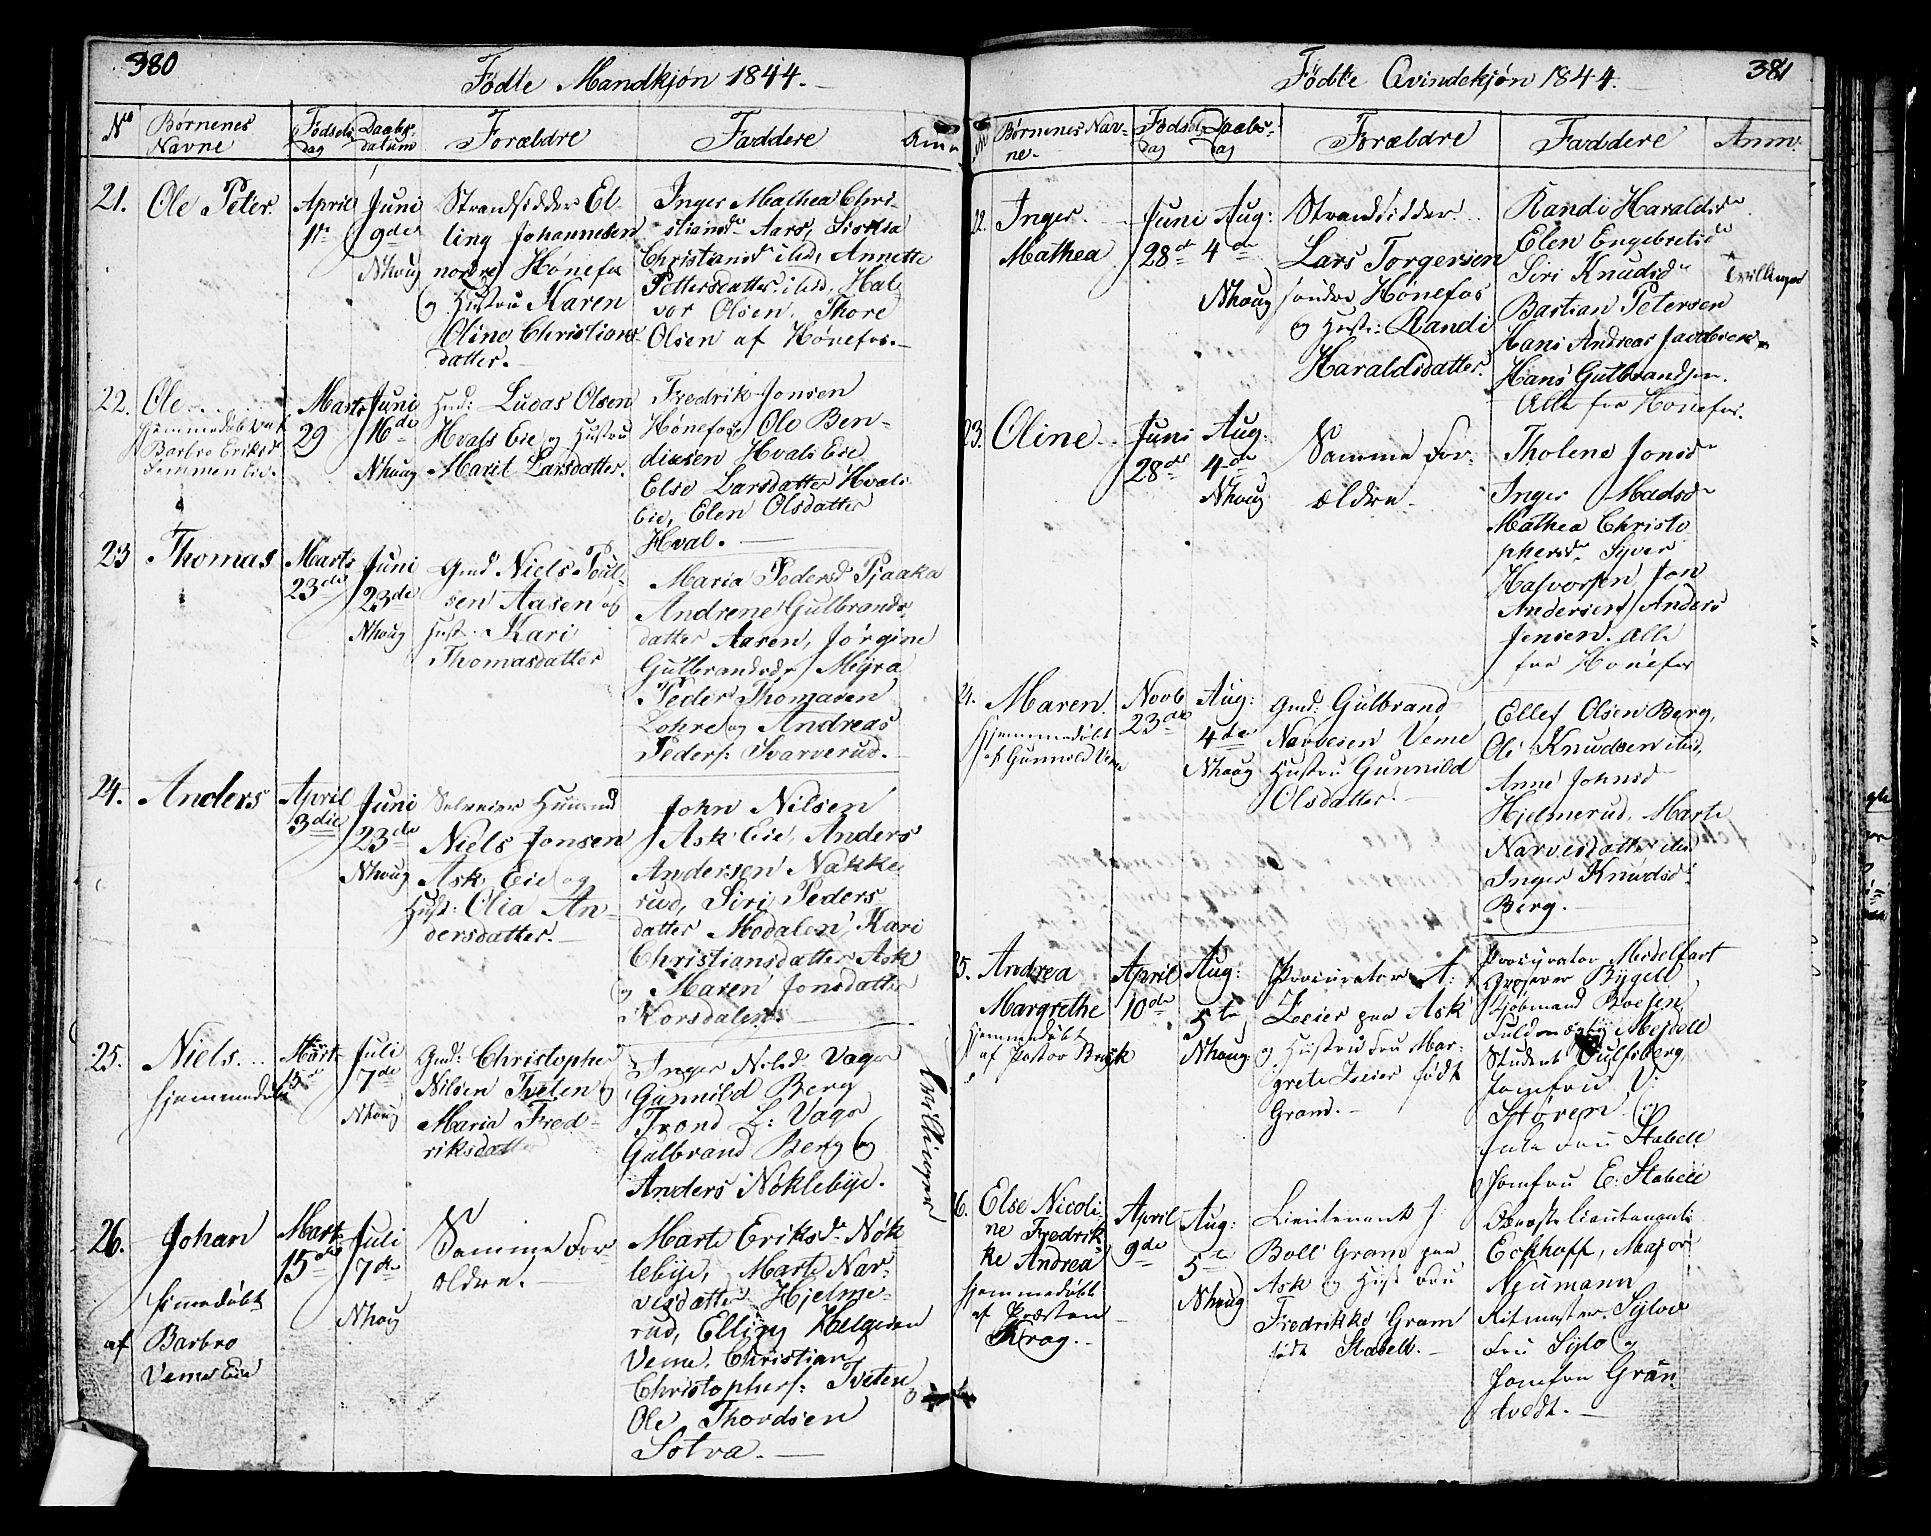 380
Fødte Mandkjøn 1844.
No Børnenes Navne Fødsels dag Daabs datum Forældre Faddere Anm
21. Ole Peter. April 11te Juni 9de Nhoug
Strandsidder El-
ling Johannesen
nordre Hønefos
og Hustru Karen
Oline Christians-
datter.
Inger Mathea Chri-
stiansdr Aars,
Christiansd ibid, Annette
Pettersdatter ibid, Hal-
vor Olsen, Thore
Olsen af Hønefos.
22. Ole
hjemmedøbt af
Barbro Eriksd
Marts 29 Juni 16de Nhoug
Hmd: Lucas Olsen
Hvals Eie og Hustru
Marit Larsdatter.
Fredrik Jonsen
Hønefos, Ole Ben-
dixsen Hvals Eie
Else Larsdatter Hvals
Eie, Elen Olsdatter
Hval.
23 Thomas Marts 23de Juni 23de Nhoug
Gmd Niels Poul-
sen Aasen og
Hust. Kari
Thomasdatter
Maria Pedersd Pjaaka
Andrene Gulbrands-
datter Aaren, Jörgine
Gulbrandsdr Myra
Peder Thomasen
Lohre og Andreas
Peders: Svarverud.
24. Anders April 3die Juni 23de Nhoug
Selveier Huusmd
Niels Jonsen
Ask Eie og
Hust: Olia An-
dersdatter.
John Nilsen
Ask Eie, Anders
Andersen Nakke-
rud, Siri Peders-
datter Modalen, Kari
Christiansdatter Ask
og Maren Jonsdatter
Norsdalen.
25. Niels
hjemmedøbt
Marts 15de Juli 7de Nhoug
Gmd: Christopher
Nilsen Tveten og
Maria Fred-
riksdatter
Inger Nilsd Vager
Gunnild Berg
Trond E: Vager
Gulbrand Berg og
Anders Nøklebye.
Tvillinger
26. Johan
hjemmedøbt
af Barbro
Vemes Eie
Marts 15de Juli 7de Nhoug
Samme For-
ældre.
Marte Eriksdr Nøk-
lebye, Marte Nar-
vesdatter Hjelme-
rud, Elling Helgesen
Veme, Christian
Christophers: Tveten
Ole Thordsen
Sotva.
381
Fødte Qvindekjøn 1844.
No Børnenes Nav-ne. Fødsels dag Daabs-dag Forældre Faddere Anm.
22. Inger
Mathea
Juni 28de Aug: 4de Nhoug
Strandsidder
Lars Torgersen
søndre Hønefos
og Hustr: Randi
Haraldsdatter.
Randi Haraldsdr
Elen Engebretsdr
Siri Knudsdr
Bastian Petersen
Hans Andreas Jacobsen
Hans Gulbrandsen.
Alle fra Hønefos.
Tvillinger
23. Oline Juni 28de Aug: 4de Nhoug
Samme For-
ældre.
Tholene Jonsdr
Inger Madsdr
Mathea Christo-
phersdr Syver
Halvorsen, Jon
Andersen, Anders
Jensen. Alle
fra Hønefos
24. Maren.
hjemmedøbt
af Gunnild Veme
Novb 23de Aug: 4de Nhoug
Gmd: Gulbrand
Narvesen Veme
Hustru Gunnild
Olsdatter.
Ellef Olsen Berg,
Ole Knudsen ibid,
Anne Johnsd
Hjelmerud, Marte
Narvesdatter ibid
Inger Knudsdr
Berg.
25. Andrea
Margrethe
hjemmedøbt
af Pastor
April 10de Aug: 5te Nhoug
Procurator A:
Zeier paa Ask
og Hustru Fru Mar-
grete Zeier født
Gram.
Procurator Meidelfart
Bygell
Kjøbmand Boesen,
Mejdell
Student Gulsberg,
Jomfru V:
Støren og
Fru Stabell
Jomfru E: Stabell
26. Else Nicoli-
ne Fredrik-
ke Andrea
hjemmedøbt
af Præsten
Krog.
April 9de Aug: 5te Nhoug
Lieutenant J
Boll Gram paa
Ask og Hust Fru
Fredrikke Gram
født Stabell.
Oberstelieutenant
Eckhoff, Major
Neumann
Ritmester Sylow
Fru Sylo og
Jomfru Grøn-
tvedt.